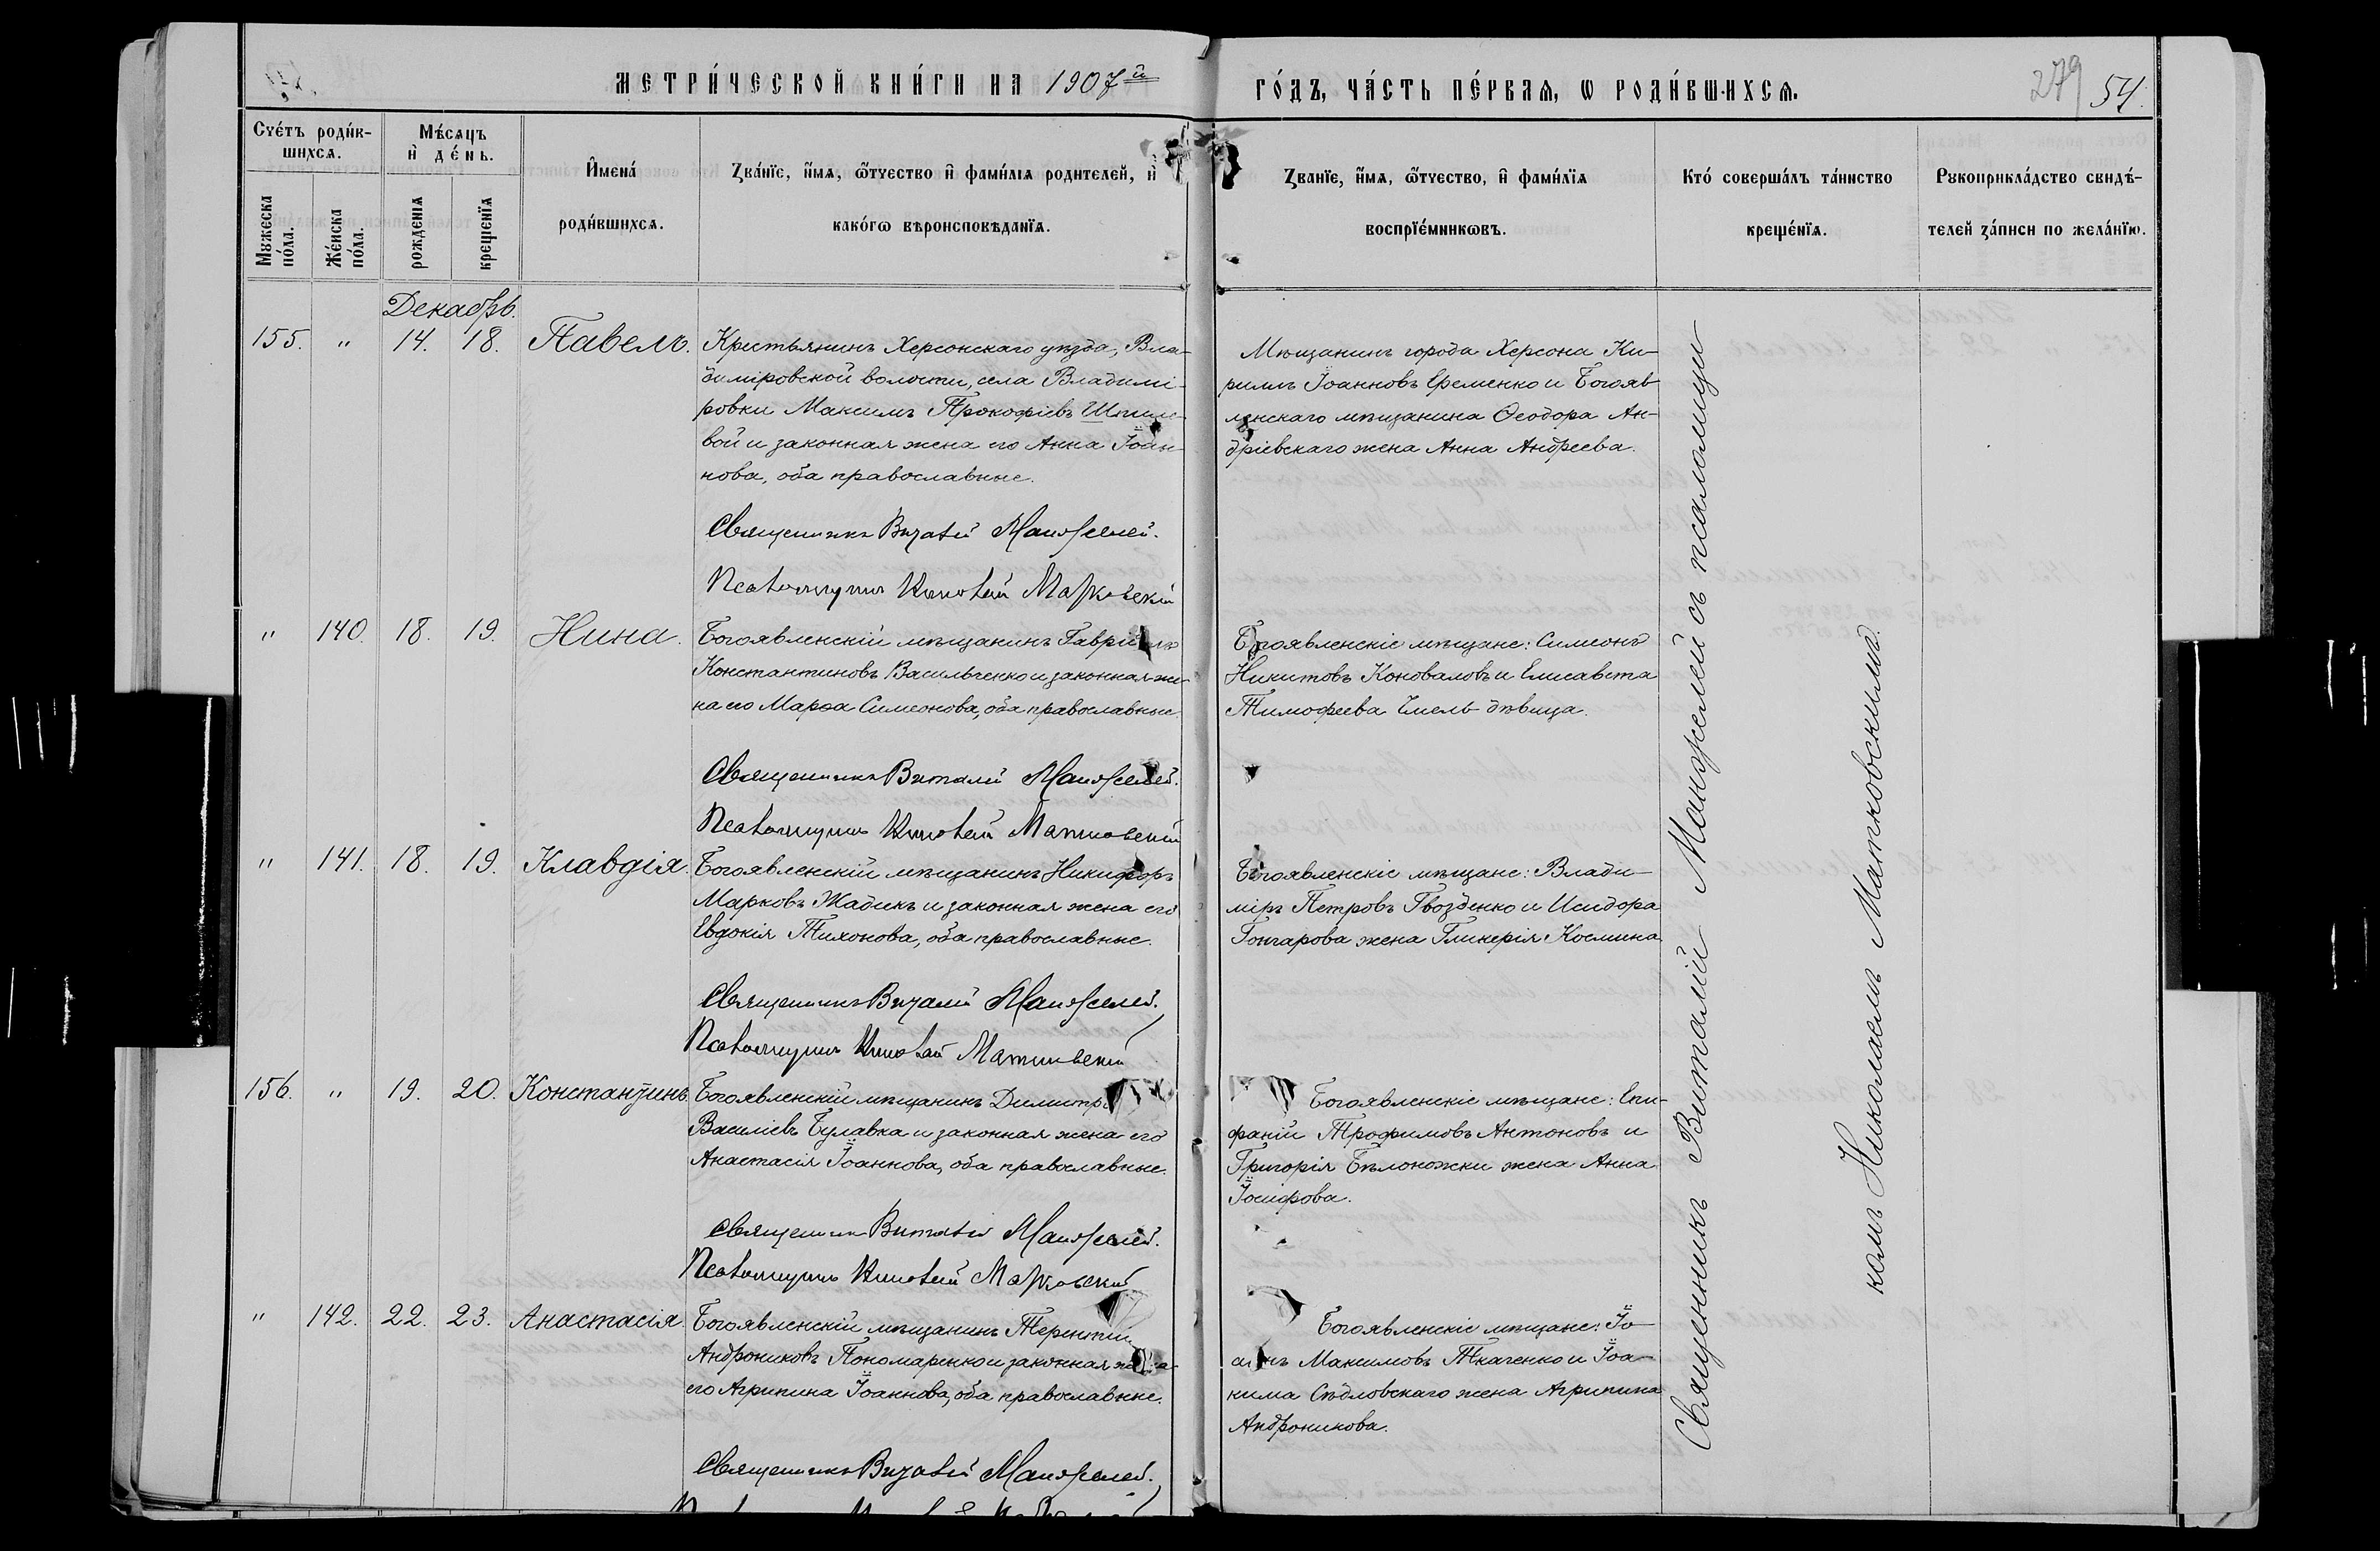 МЕТРИ́ЧЕСКОЙ КНИ́ГИ НА 1907й
ГО́ДЪ, ЧА́СТЬ ПЕ́РВАѦ, Ѡ РОДИ́ВШИХСѦ.
279 54.
Счéтъ роди́в-
шихсѧ.
Мꙋжеска
по́ла.
Же́нска
по́ла.
Мѣ́сѧцъ
и҆ де́нь.
рожденїѧ
крещенїѧ
И҆мена́
роди́вшихсѧ.
Ꙁва́нїе, и҆́мѧ, ѻ҆́тчество и҆ фами́лїѧ родителей, и҆
како́гѡ вѣроисповѣданїѧ.
Ꙁванїе, и҆́мѧ, ѻ҆́тчество, и҆ фами́лїѧ
воспрїе́мникѡвъ.
Кто́ соверша́лъ та́инство
креще́нїѧ.
Рꙋкоприкла́дство свидѣ́-
телей ꙁа́писи по жела́нїю.
Декабрь.
155. " 14. 18. Павелъ.
Крестьянинъ Херсонскаго уѣзда, Вла-
диміровской волости, села Владимі-
ровки Максимъ Прокофіевъ
вой и законная жена его Анна Іоан-
нова, оба православные.
Священникъ Виталій Манжелей.
Псаломщикъ Николай Матковскій
Мѣщанинъ города Херсона Ки-
риллъ Іоанновъ Еременко и Богояв-
ленскаго мѣщанина Ѳеодора Ан-
дріевскаго жена Анна Андреева.
" 140. 18. 19. Нина.
Богоявленскій мѣщанинъ Гавріилъ
Константиновъ Васильченко и законная же-
на его Марѳа Симеонова, оба православные.
Священникъ Виталій Манжелей.
Псаломщикъ Николай Матковскій
Богоявленскіе мѣщане: Симеонъ
Никитовъ Коноваловъ и Елисавета
Тимофеева дѣвица.
" 141. 18. 19. Клавдія.
Богоявленскій мѣщанинъ Никифоръ
Марковъ Жадикъ и законная жена его
Евдокія Тихонова, оба православные.
Священникъ Виталій Манжелей.
Псаломщикъ Николай Матковскій
Богоявленскіе мѣщане: Влади-
міръ Петровъ Гвозденко и Исидора
Гончарова жена Гликерія Космина.
156. " 19. 20. Константинъ.
Богоявленскій мѣщанинъ Димитрій
Василіевъ Булавка и законная жена его
Анастасія Іоаннова, оба православные.
Священникъ Виталій Манжелей.
Псаломщикъ Николай Матковскій
Богоявленскіе мѣщане: Епи-
фаній Трофимовъ Антоновъ и
Григорія Бѣлоножки жена Анна
Іосифова.
" 142. 22. 23. Анастасія.
Богоявленскій мѣщанинъ Терентій
Андрониковъ Пономаренко и законная жена
его Агрипина Іоаннова, оба православные.
Священникъ Виталій Манжелей.
Богоявленскіе мѣщане: Іо-
аннъ Максимовъ Ткаченко и Іоа-
кима Сѣдловскаго жена Агрипина
Андроникова.
Священникъ Виталій Манжелей съ псаломщи-
комъ Николаемъ Матковскимъ.